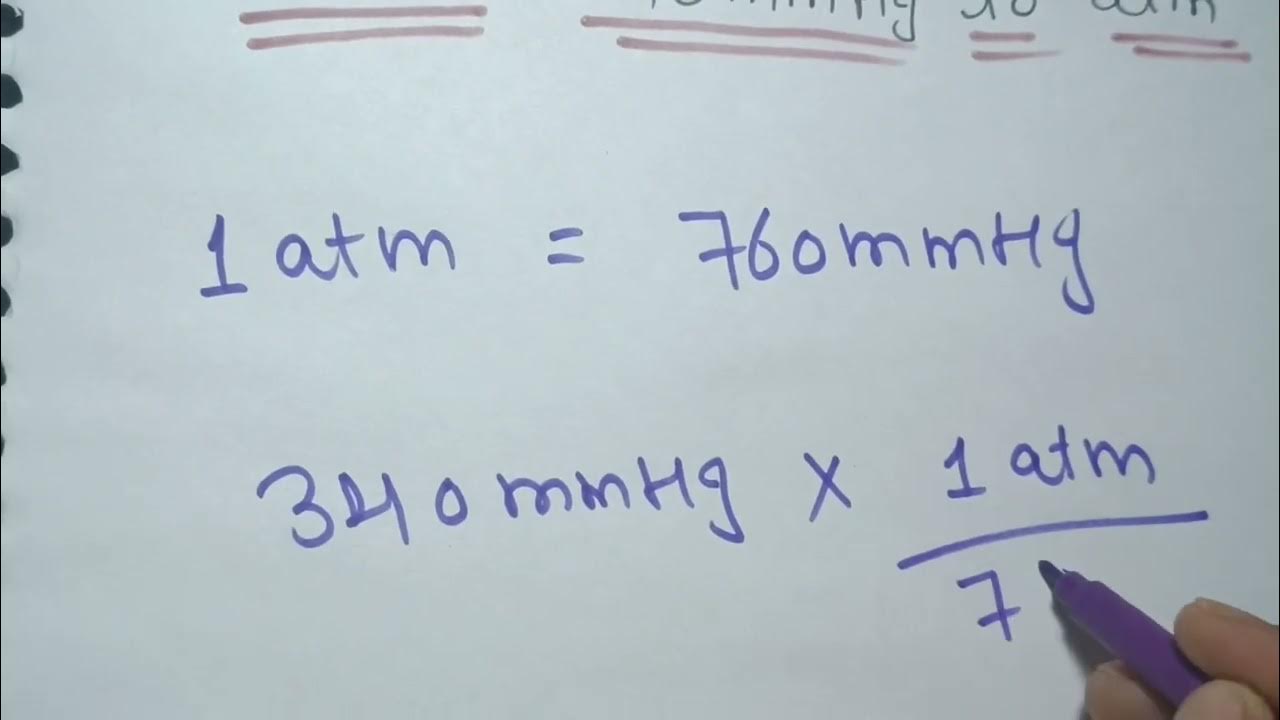 to atm
1 atm = 760mmHg
340 mmHg × 1 atm
7